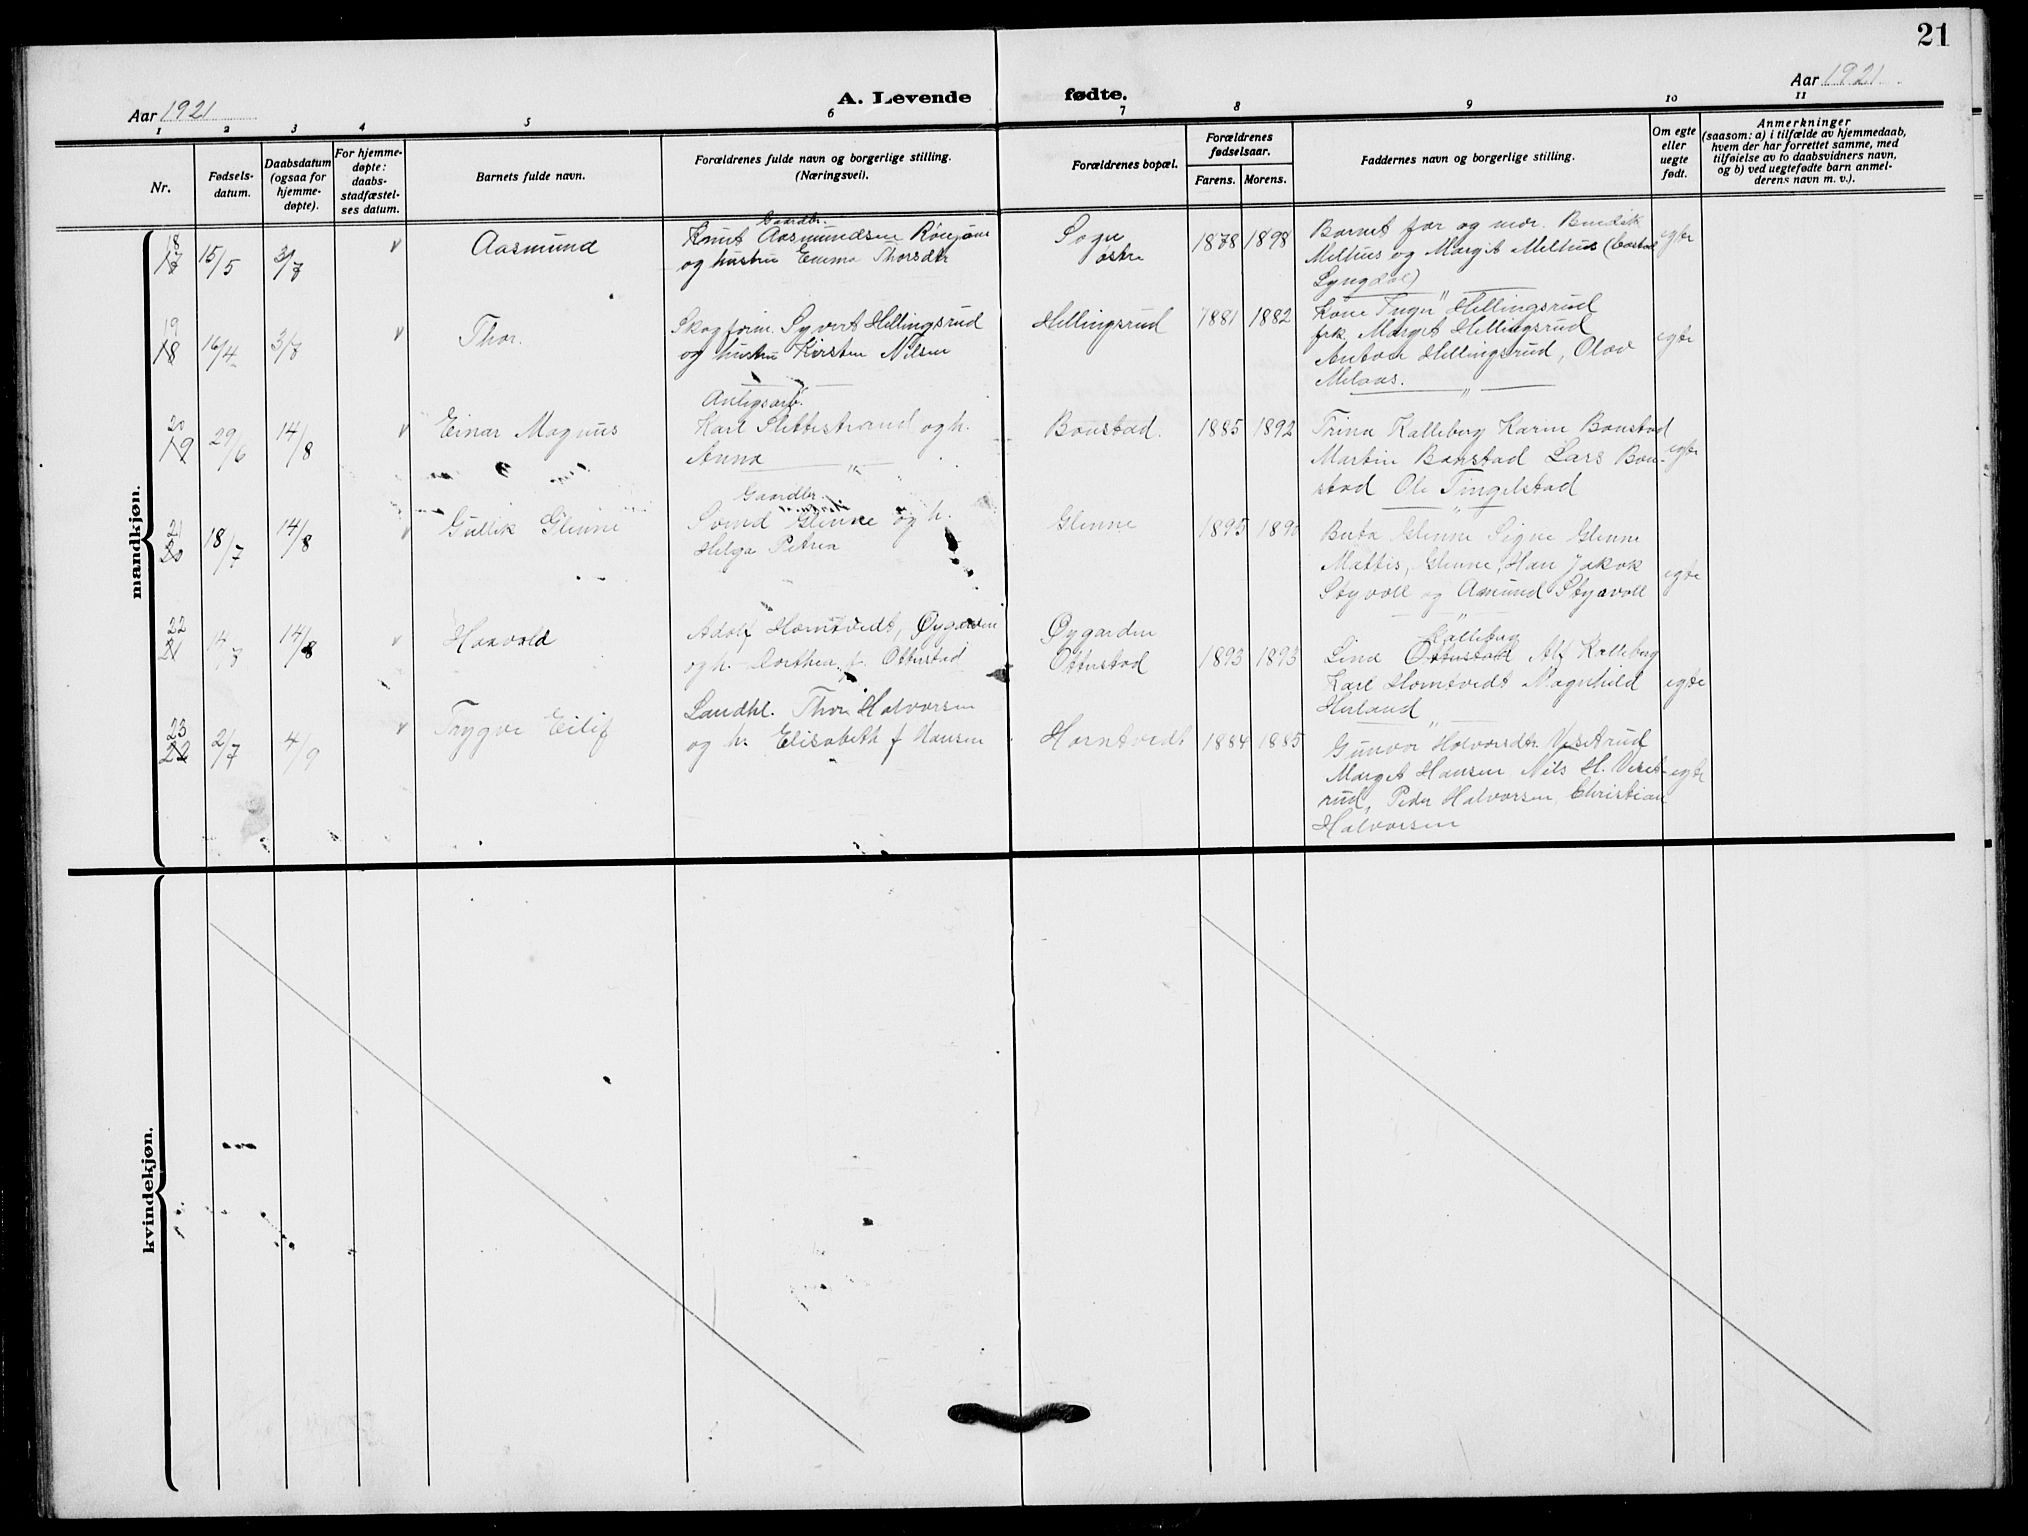 21
Aar 1921
A. Levende fødte.
Aar 1921
1 2 3 4 5 6 7 8 9 10 11
Nr.
Fødsels-
datum.
Daabsdatum
(ogsaa for
hjemme-
døpte).
For hjemme-
døpte:
daabs-
stadfæstel-
ses datum.
Barnets fulde navn.
Forældrenes fulde navn og borgerlige stilling.
(Næringsvei).
Forældrenes bopæl.
Forældrenes
fødselsaar.
Farens. Morens.
Faddernes navn og borgerlige stilling.
Om egte
eller
uegte
født.
Anmerkninger
(saasom: a) i tilfælde av hjemmedaab,
hvem der har forrettet samme, med
tilføielse av to daabsvidners navn,
og b) ved uegtefødte barn anmel-
derens navn m. v.).
mandkjøn.
18
17
15/5
3/7
v
Aasmund
Gaardbr.
Knut Aasmundsen
og hustru Emma Thorsdtr
østre
1878 1898
Barnet far og mor.
Melhus og Margit Melhus
Lyngdal)
egte
19
18
16/4
3/7
v
Thor.
Skogform. Syvert Hellingsrud
og hustru Kirsten Nilsen
Hellingsrud
1881 1882
Kone Inger Hellingsrud
frk. Margit Hellingsrud
Anton Hellingsrud, Olav
Melaas.
egte
20
19
29/6
14/8
v
Einar Magnus
Anlegsarb.
Karl Slettestrand og h.
Anna
Bonstad.
1885 1892
Trina Kalleberg Karin Bonstad
Martin Bonstad Lars Bon-
stad Ole Tingelstad
egte
21
20
18/7
14/8
v
Gullik Glenne
Gaardbr.
Glenne og h.
Helga Petrea
Glenne
1895 1890
Berta Glenne Signe Glenne
Mattis Glenne, Jakob
Styvoll og Amund Styvoll
egte
22
21
14/8
v
Haavald
Adolf Homtvedt, Øygarden
og h. Dorthea f. Ottestad
Øygarden
Ottestad
1893 1893
Kalleberg
Lina Ottestad Alf Kalleberg
Karl Homtvedt Magnhild
egte
23
22
2/7
4/9
v
Trygve Eilif
Landhl. Thor Halvorsen
og h. Elisabeth f Hansen
Homtvedt
1884 1885
Gunvor Halvorsdtr.
Marget Hansen Nils H.
rud, Peder Halvorsen, Christian
Halvorsen
egte
kvindekjøn.